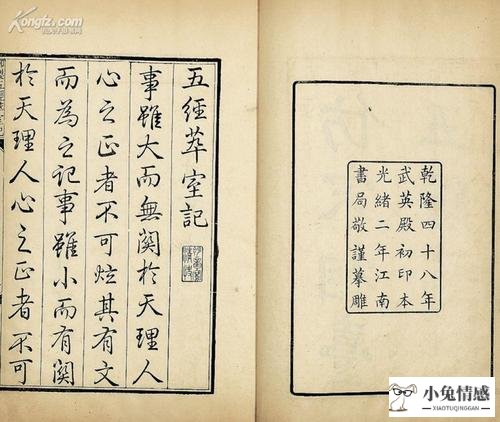 Kongfz.com
乾隆四十八年
武英殿初印本
光緒二年江南
書局敬謹摹雕
五經萃室記
事雖大而無關於天理人
心之正者不可炫其有文
而為之記事雖小而有關
於天理人心之正者不可
小兔情感
XIAOTUQINGGAN